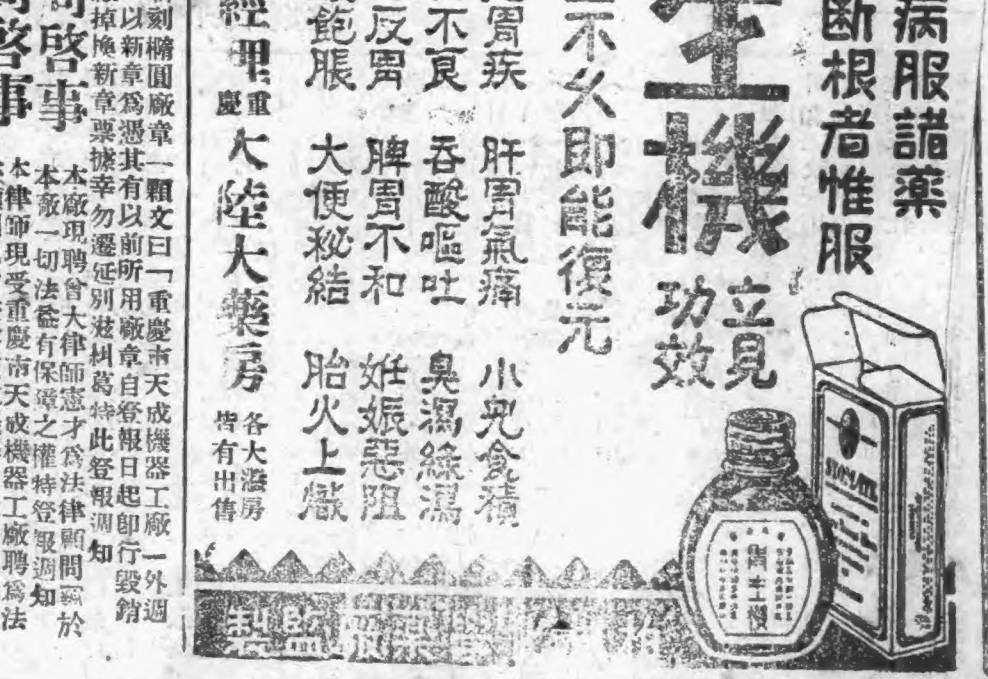 病服諸藥
斷根者惟服
生機
立見
功效
不久即能復元
胃疾 肝胃氣痛 小兒食積
不良 吞酸嘔吐 臭濕綠瀉
反胃 脾胃不和 妊娠惡阻
飽脹 大便秘結 胎火上
經理
重慶
大陸大藥房
各大藥房
皆有出售
STOMATE
胃生機
監製
刻橢圓廠章一顆文曰「重慶市天成機器工廠」外週
以新章為憑其有以前所用廠章自登報日起即行毀銷
掉換新章票據幸勿遷延別滋糾葛特此登報週知
啓事
本廠現聘曾大律師憲才為法律顧問嗣於
本廠一切法益有保障之權特登報週知
啓事
本律師現受重慶市天成機器工廠聘為法